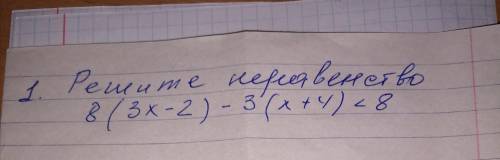 1. Решите неравенство
8(3x-2)-3(x+4)<8